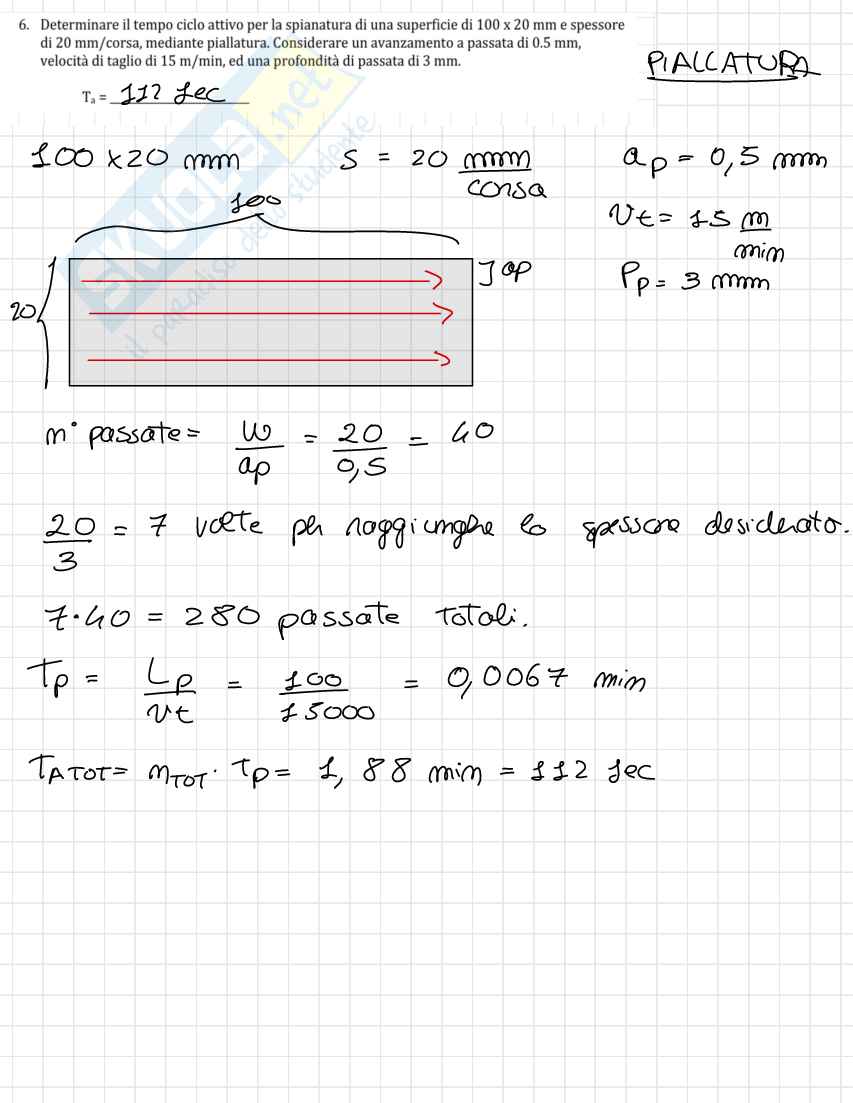 6. Determinare il tempo ciclo attivo per la spianatura di una superficie di 100 x 20 mm e spessore
di 20 mm/corsa, mediante piallatura. Considerare un avanzamento a passata di 0.5 mm,
velocità di taglio di 15 m/min, ed una profondità di passata di 3 mm.
PIALLATURA
Ta = 112 sec
SKUOLA.net
il paradiso dello studente
100 x 20 mm
S = 20 mm/corsa
ap = 0,5 mm
100
vt = 15 m/min
ap
Pp = 3 mm
20
n° passate = w/ap = 20/0,5 = 40
20/3 = 7 volte per raggiunghe lo spessore desiderato.
7·40 = 280 passate totali.
Tp = Lp/vt = 100/15000 = 0,0067 min
TATOT = nTOT · Tp = 1,88 min = 112 sec